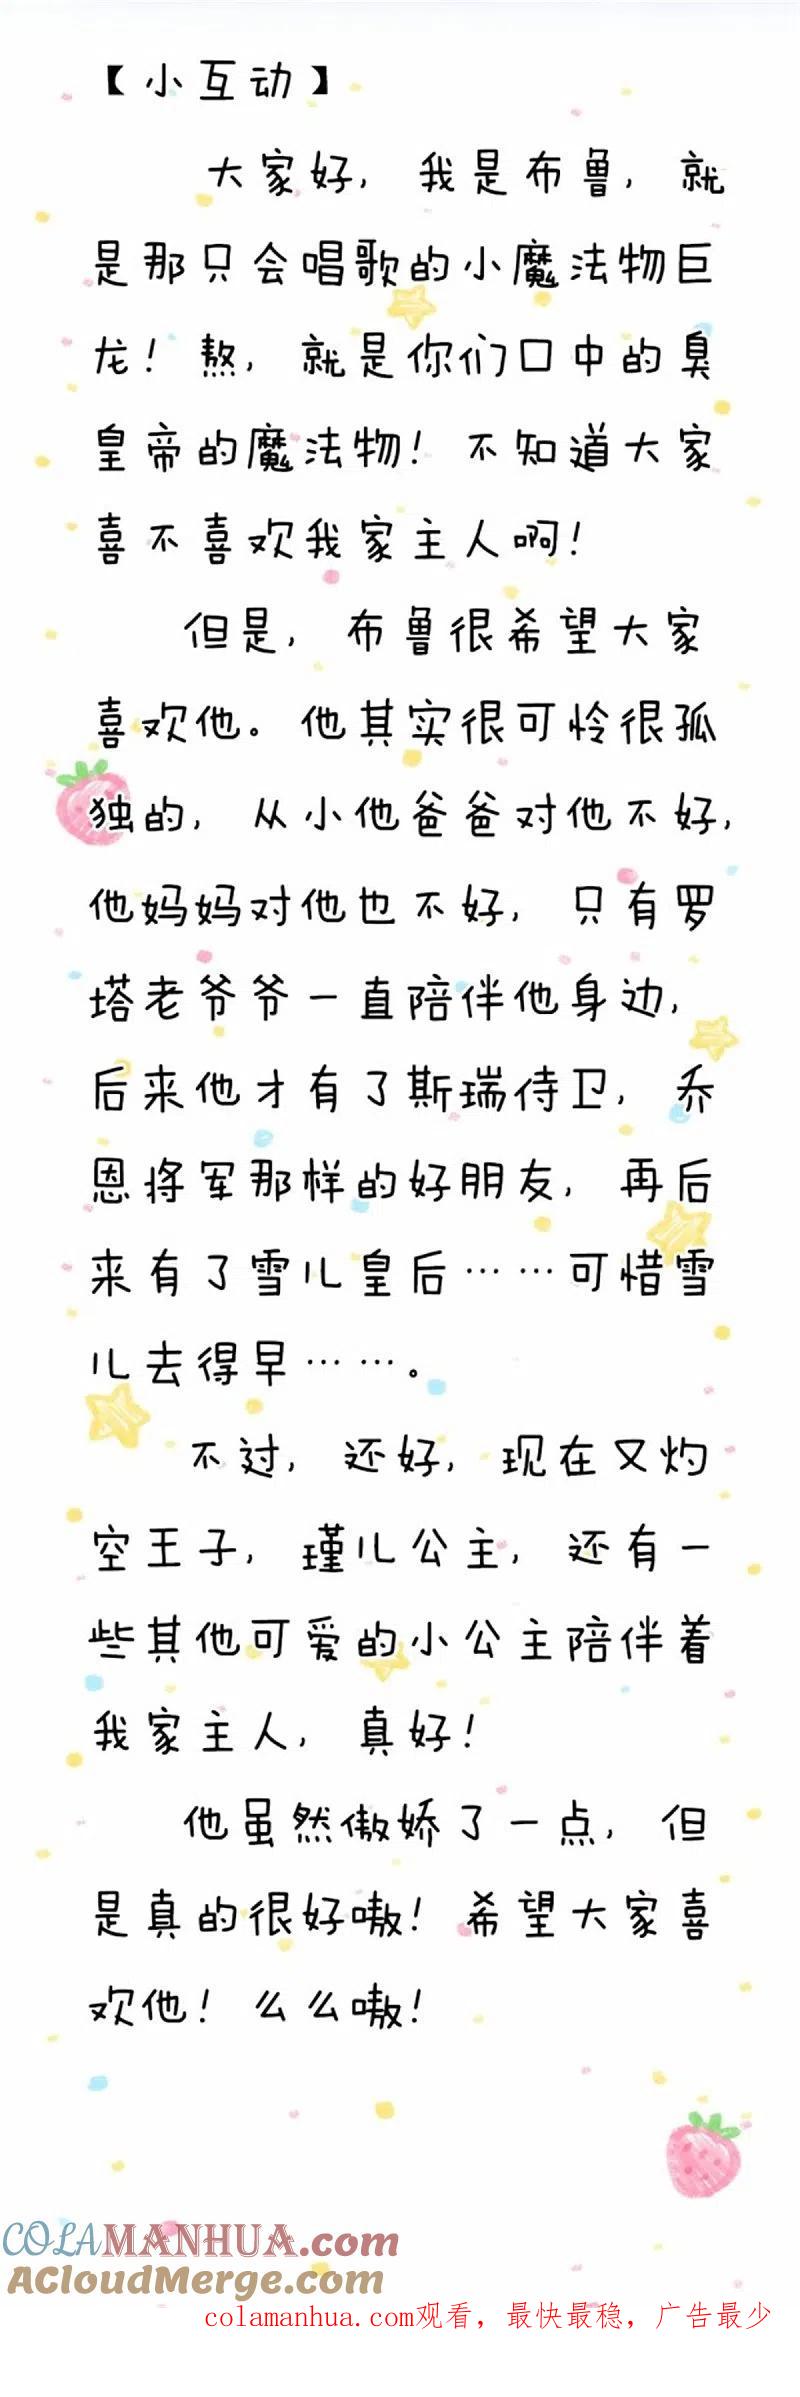 【小互动】
大家好，我是布鲁，就
是那只会唱歌的小魔法物巨
龙！熬，就是你们口中的臭
皇帝的魔法物！不知道大家
喜不喜欢我家主人啊！
但是，布鲁很希望大家
喜欢他。他其实很可怜很孤
独的，从小他爸爸对他不好，
他妈妈对他也不好，只有罗
塔老爷爷一直陪伴他身边，
后来他才有了斯瑞侍卫，乔
恩将军那样的好朋友，再后
来有了雪儿皇后……可惜雪
儿去得早……。
不过，还好，现在又灼
空王子，瑾儿公主，还有一
些其他可爱的小公主陪伴着
我家主人，真好！
他虽然傲娇了一点，但
是真的很好嗷！希望大家喜
欢他！么么嗷！
COLAMANHUA.com
ACloudMerge.com
colamanhua.com观看，最快最稳，广告最少